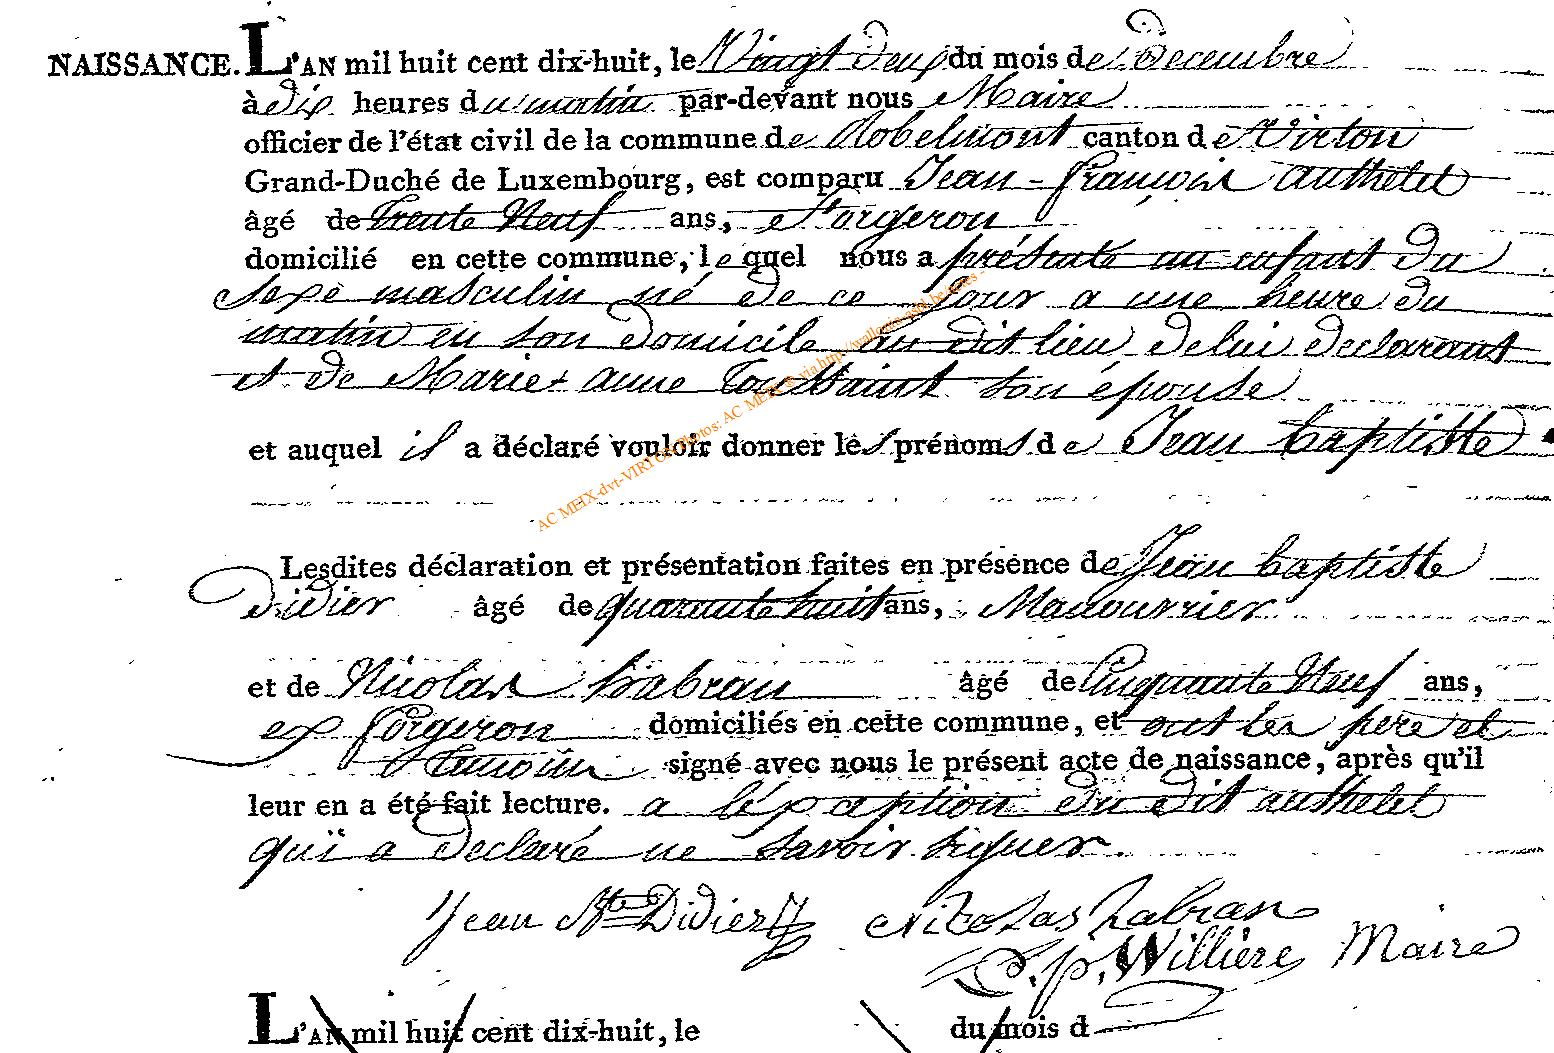 NAISSANCE. L'AN mil huit cent dix-huit, le Vingt deux du mois de Decembre
à dix heures du matin par-devant nous Maire
officier de l'état civil de la commune de Robelmont canton de Virton
Grand-Duché de Luxembourg, est comparu Jean-François authelet
âgé de Trente Neuf ans, Forgeron
domicilié en cette commune, le quel nous a présenté un enfant du
Sexe masculin né de ce jour a une heure du
matin en son domicile au dit lieu de lui declarant
et de Marie anne Toussaint son épouse
et auquel il a déclaré vouloir donner les prénoms de Jean baptiste
AC MEIX-dvt-VIRTON Photos: AC MEIX & via http://wallonia-asbl.be/actes -
Lesdites déclaration et présentation faites en présence de Jean baptiste
Didier âgé de quarante huit ans, Manouvrier
et de Nicolas habran âgé de Cinquante Neuf ans,
ex forgeron domiciliés en cette commune, et ont les pere et
temoin signé avec nous le présent acte de naissance, après qu'il
leur en a été fait lecture. a léxception du dit authelet
qui a declaré ne savoir signer.
Jean Bte Didier Nicolas habran
P. Willière Maire
L'AN mil huit cent dix-huit, le du mois d